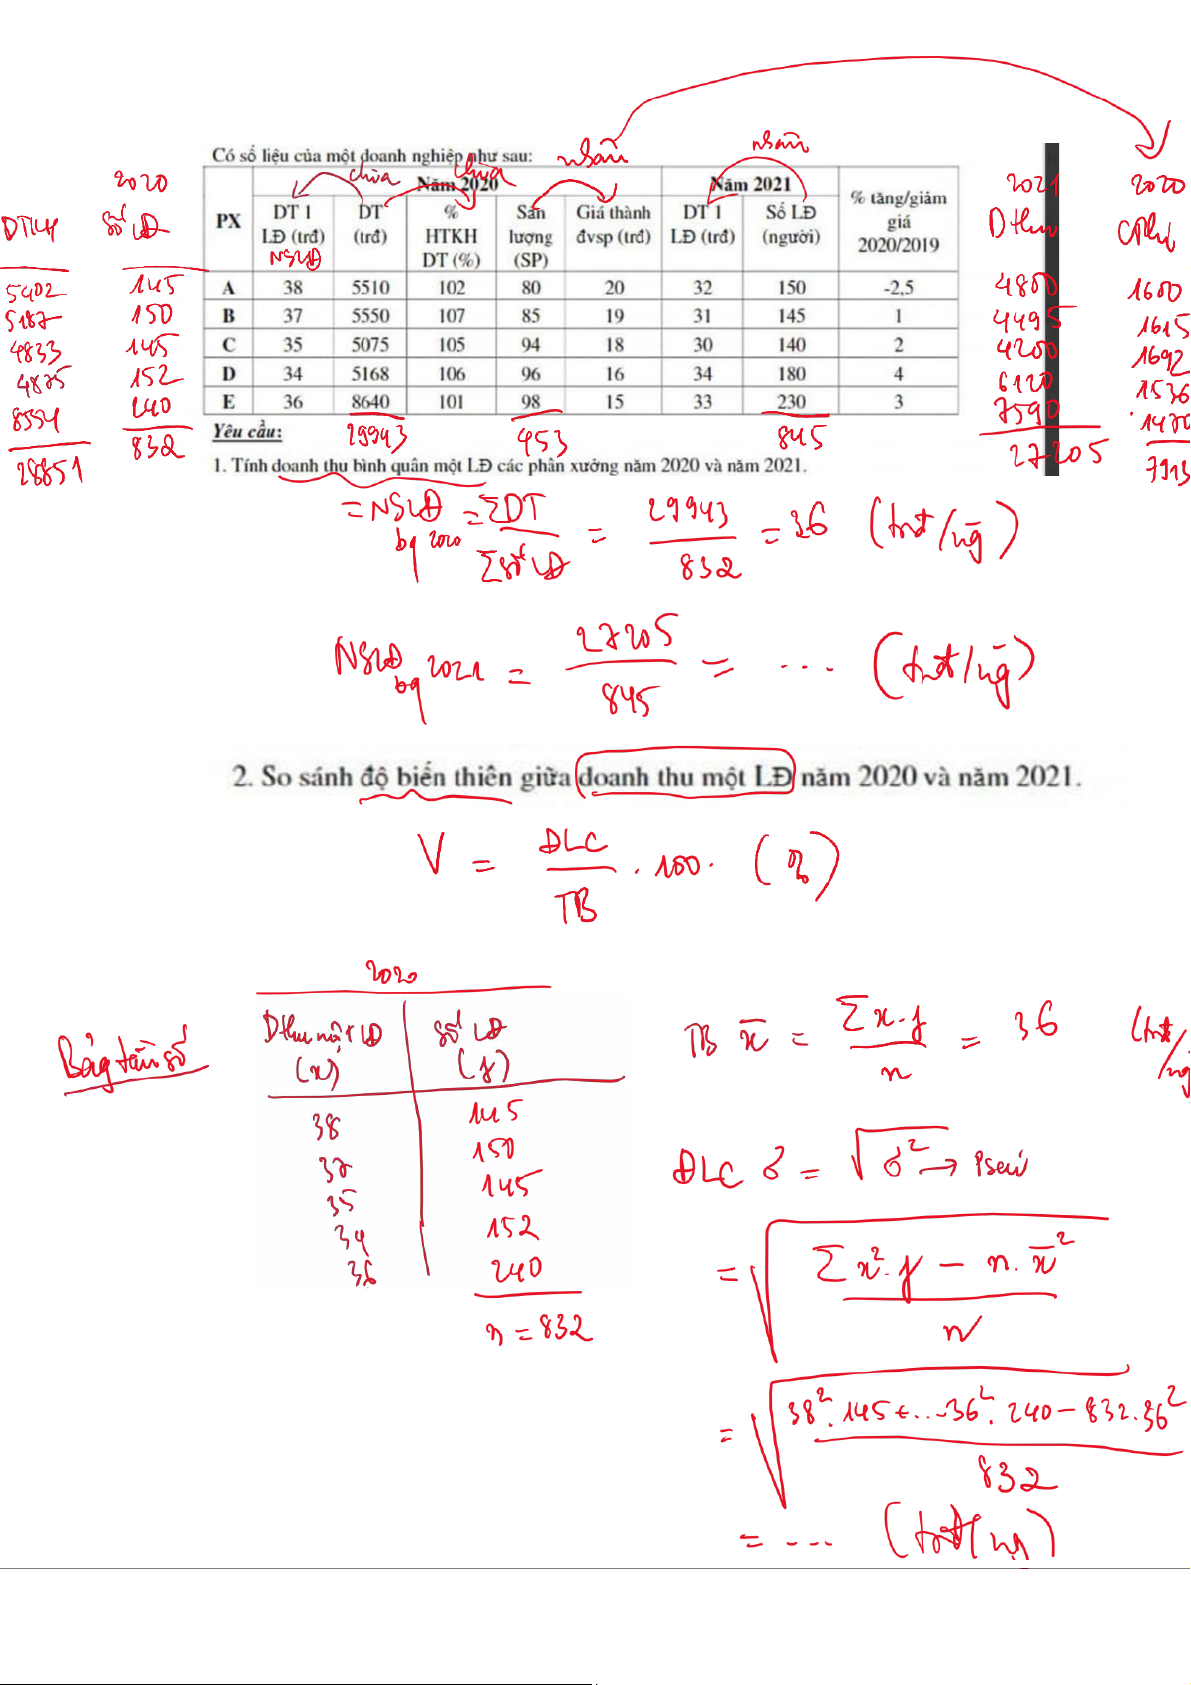 nhân
nhân
Có số liệu của một doanh nghiệp như sau:
2020
chia
chia
2021
2020
DTKH
Số LĐ
PX
Năm 2020
Năm 2021
% tăng/giảm giá 2020/2019
Dthu
CPhí
DT 1 LĐ (trđ)
DT (trđ)
% HTKH DT (%)
Sản lượng (SP)
Giá thành đvsp (trđ)
DT 1 LĐ (trđ)
Số LĐ (người)
NSLĐ
5402 145 A 38 5510 102 80 20 32 150 -2,5 4800 1600
5187 150 B 37 5550 107 85 19 31 145 1 4495 1615
4833 145 C 35 5075 105 94 18 30 140 2 4200 1692
4875 152 D 34 5168 106 96 16 34 180 4 6120 1536
8554 240 E 36 8640 101 98 15 33 230 3 7590 1470
28851 832 29943 453 845 27205 7913
Yêu cầu:
1. Tính doanh thu bình quân một LĐ các phân xưởng năm 2020 và năm 2021.
= NSLĐ bq 2020 = ΣDT / Σsố LĐ = 29943 / 832 = 36 (trđ/ng)
NSLĐ bq 2021 = 27205 / 845 = ... (trđ/ng)
2. So sánh độ biến thiên giữa doanh thu một LĐ năm 2020 và năm 2021.
V = ĐLC / TB . 100. (%)
2020
Bảng tần số
Dthu một LĐ (x)
Số LĐ (f)
38 145
37 150
35 145
34 152
36 240
n = 832
TB x̄ = Σx.f / n = 36 (trđ/ng
ĐLC σ = √σ² → Psai
= √(Σx².f − n.x̄² / n)
= √(38².145 + ... 36².240 − 832.36² / 832)
= ... (trđ/ng)